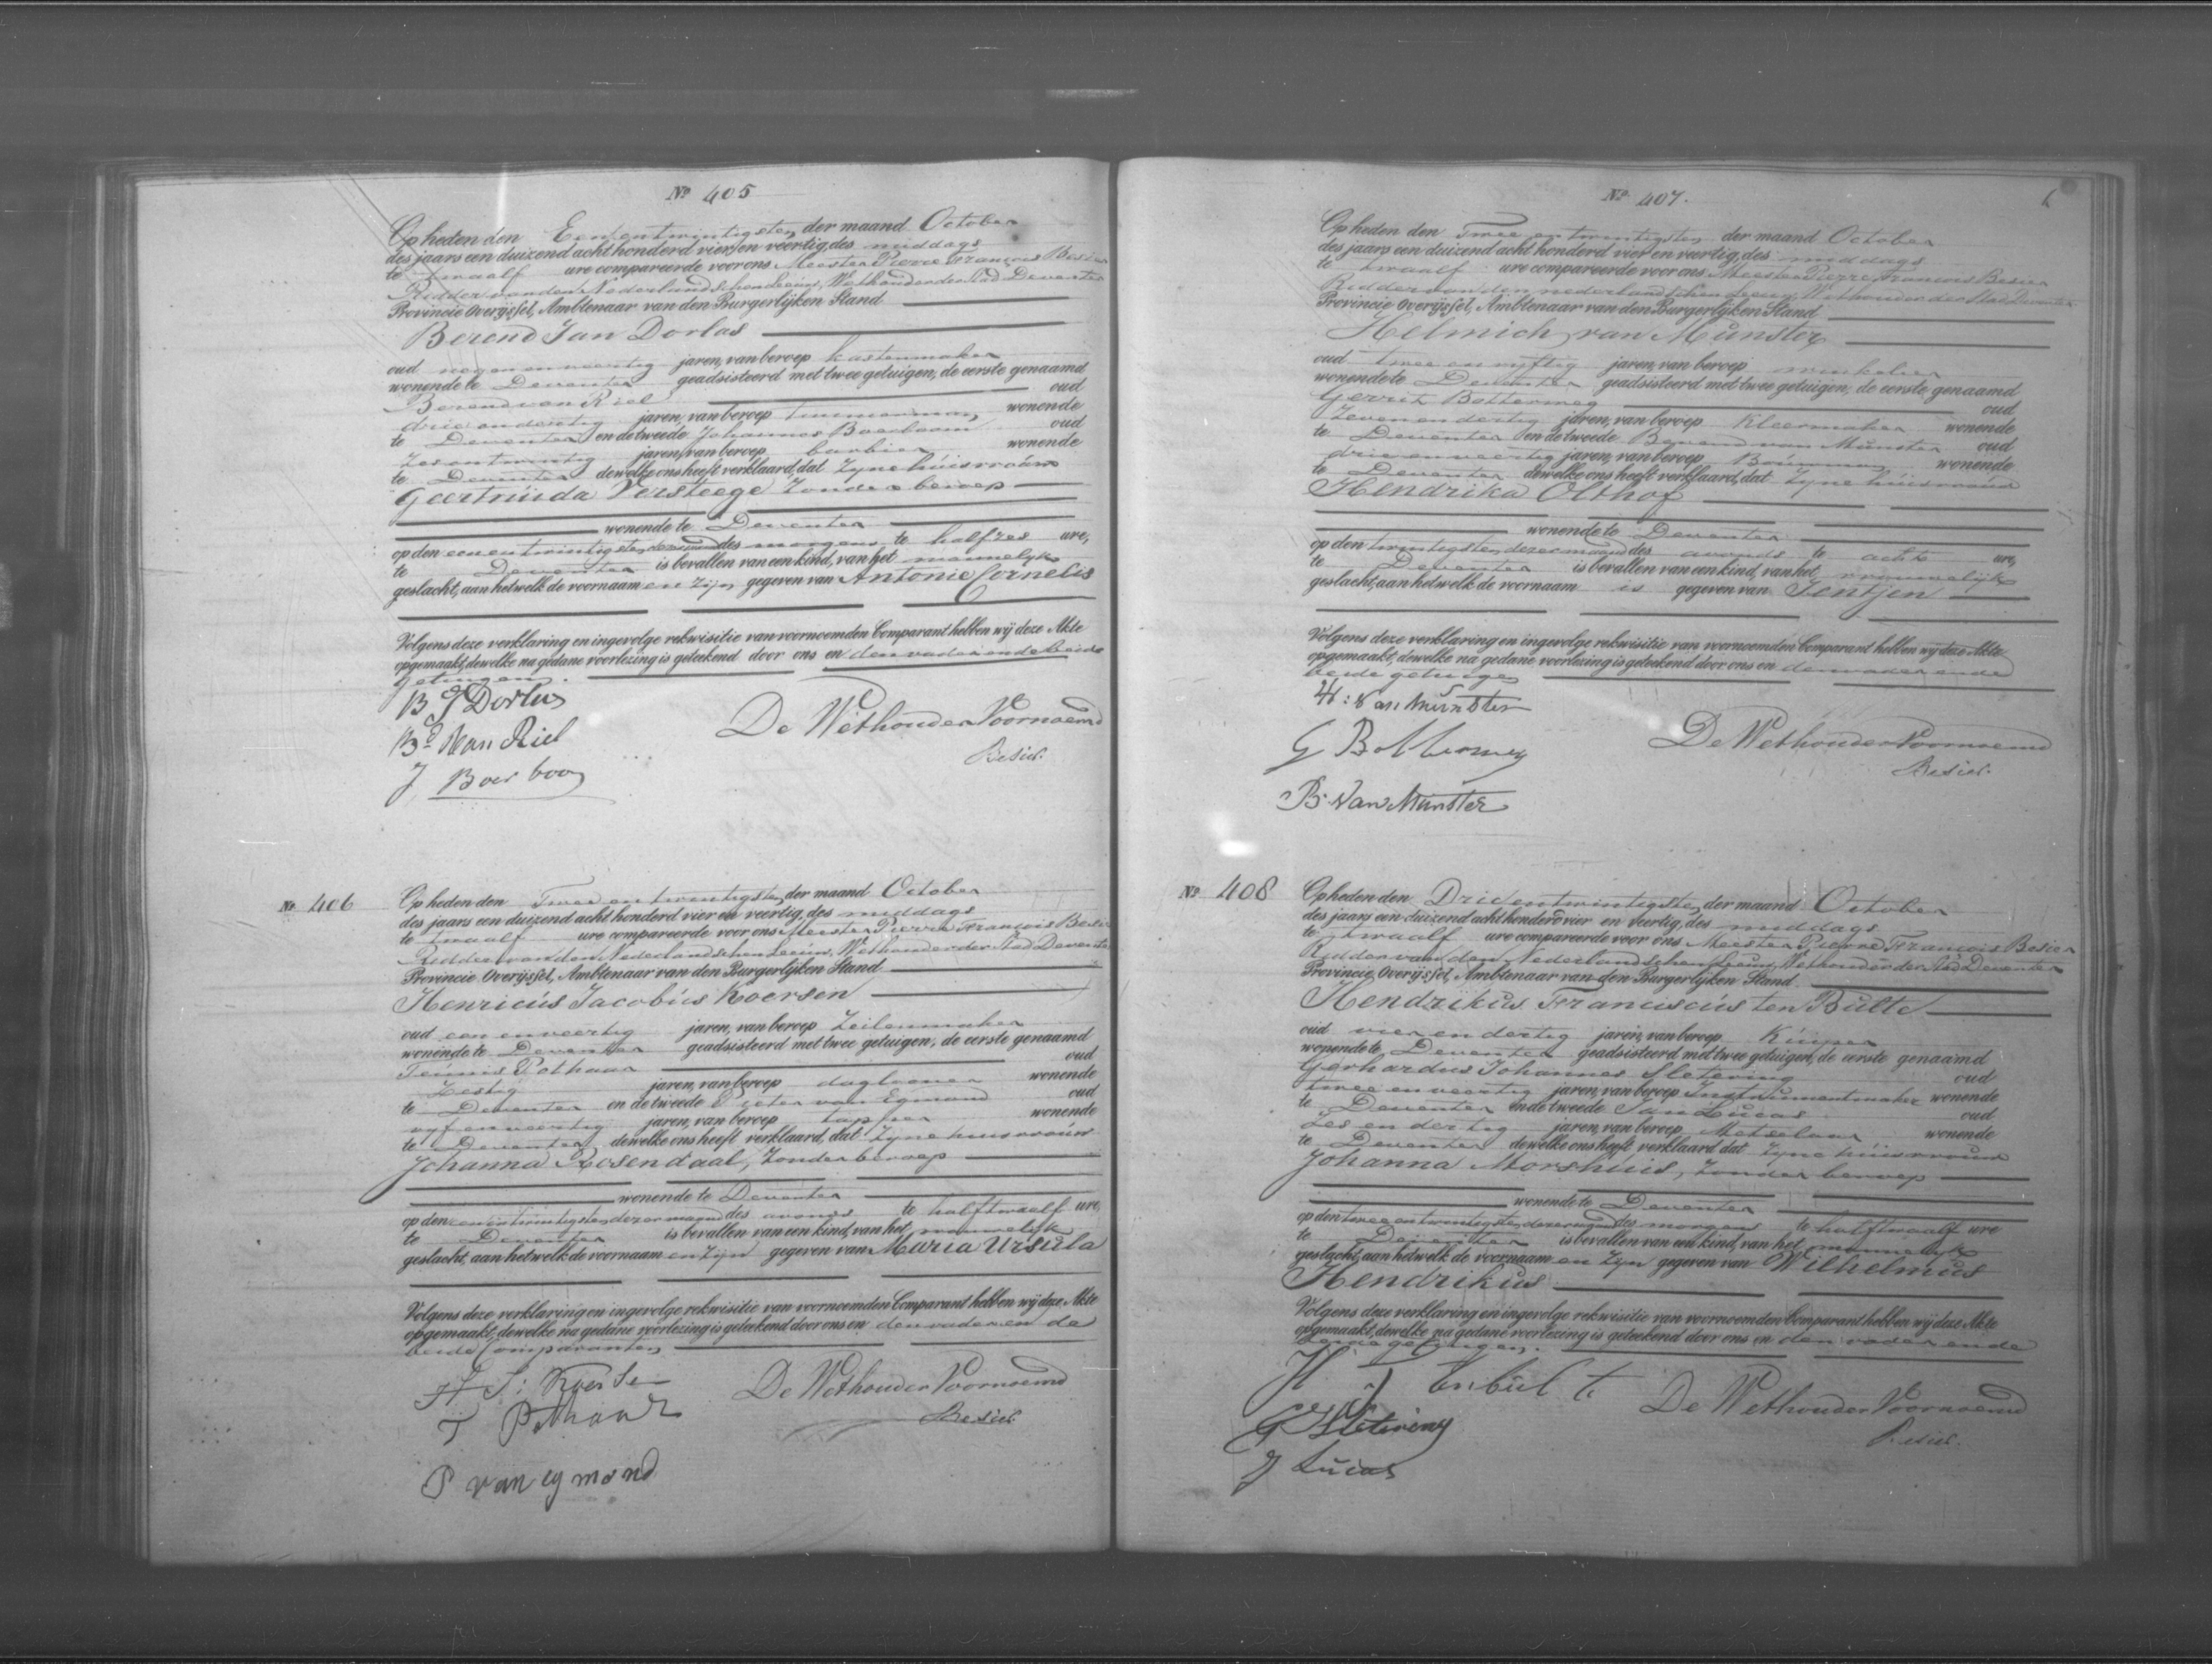 Nº 405
Op heden den Een en twintigsten der maand October
des jaars een duizend acht honderd vier en veertig, des middags
te twaalf ure compareerde voor ons Meester Pierre François Besier
Ridder van den Nederlandschen Leeuw, Wethouder der Stad Deventer
Provincie Overijssel, Ambtenaar van den Burgerlijken Stand
Berend Jan Dorlas
oud negen en veertig jaren, van beroep kastenmaker
wonende te Deventer geadsisteerd met twee getuigen, de eerste genaamd
Berend van Riel oud
drie en dertig jaren, van beroep timmerman, wonende
te Deventer en de tweede Johannes Boerboom oud
zes en twintig jaren, van beroep barbier wonende
te Deventer dewelke ons heeft verklaard, dat zyne huisvrouw
Geertruida Versteege zonder beroep
wonende te Deventer
op den een en twintigsten dezer maand des morgens te half zes ure,
te Deventer is bevallen van een kind, van het mannelyk
geslacht, aan hetwelk de voornaam en zijn gegeven van Antonie Cornelis
Volgens deze verklaring en ingevolge rekwisitie van voornoemden Comparant hebben wij deze Akte
opgemaakt, dewelke na gedane voorlezing is geteekend door ons en den vader en de beide
getuigen.
B J Dorlas
Bd Van Riel
De Wethouder Voornoemd
Besier.
J Boerboom
Nº 406
Op heden den Twee en twintigsten der maand October
des jaars een duizend acht honderd vier en veertig, des middags
te twaalf ure compareerde voor ons Meester Pierre François Besier
Ridder van den Nederlandschen Leeuw, Wethouder der Stad Deventer
Provincie Overijssel, Ambtenaar van den Burgerlijken Stand
Henricus Jacobus Koersen
oud een en veertig jaren, van beroep Zeilenmaker
wonende te Deventer geadsisteerd met twee getuigen, de eerste genaamd
Teunis Pothaar oud
Zestig jaren, van beroep daglooner wonende
te Deventer en de tweede Pieter van Egmond oud
vyf en veertig jaren, van beroep tapper wonende
te Deventer dewelke ons heeft verklaard, dat zyne huisvrouw
Johanna Rosendaal, zonder beroep
wonende te Deventer
op den een en twintigsten dezer maand des avonds te half twaalf ure,
te Deventer is bevallen van een kind, van het
geslacht, aan hetwelk de voornaam en zyn gegeven van Maria Ursula
Volgens deze verklaring en ingevolge rekwisitie van voornoemden Comparant hebben wij deze Akte
opgemaakt, dewelke na gedane voorlezing is geteekend door ons en den vader en de
beide Comparanten
Koersen
T Pothaar
De Wethouder Voornoemd
Besier
P van egmond
Nº 407.
Op heden den Twee en twintigsten der maand October
des jaars een duizend acht honderd vier en veertig, des middags
te twaalf ure compareerde voor ons Meester Pierre François Besier
Ridder van den nederlandschen Leeuw, Wethouder der Stad Deventer
Provincie Overijssel, Ambtenaar van den Burgerlijken Stand
Helmich van Munster
oud twee en vyftig jaren, van beroep winkelier
wonende te Deventer geadsisteerd met twee getuigen, de eerste genaamd
Gerrit Bolterweg oud
Zeven en dertig jaren, van beroep Kleermaker wonende
te Deventer en de tweede Berend van Munster oud
drie en veertig jaren, van beroep Bouwman wonende
te Deventer dewelke ons heeft verklaard, dat zyne huisvrouw
Hendrika Olthof
wonende te Deventer
op den twintigsten dezer maand des avonds te acht ure,
te Deventer is bevallen van een kind, van het vrouwelijk
geslacht, aan hetwelk de voornaam is gegeven van Jentjen
Volgens deze verklaring en ingevolge rekwisitie van voornoemden Comparant hebben wij deze Akte
opgemaakt, dewelke na gedane voorlezing is geteekend door ons en den vader en de
beide getuigen
H: Van Munster
G Bolterweg
De Wethouder Voornoemd
Besier.
B. Van Munster
Nº 408
Op heden den Drie en twintigsten der maand October
des jaars een duizend acht honderd vier en veertig, des middags
te twaalf ure compareerde voor ons Meester Pierre François Besier
Ridder van den Nederlandschen Leeuw, Wethouder der Stad Deventer
Provincie Overijssel, Ambtenaar van den Burgerlijken Stand
Hendrikus Franciscus ten Bulte
oud vier en dertig jaren, van beroep Kuiper
wonende te Deventer geadsisteerd met twee getuigen, de eerste genaamd
Gerhardus Johannes Sletering oud
twee en veertig jaren, van beroep Instrumentmaker wonende
te Deventer en de tweede Jan Lucas oud
Zes en dertig jaren, van beroep Metselaar wonende
te Deventer dewelke ons heeft verklaard dat zyne huisvrouw
Johanna Morshuis, zonder beroep
wonende te Deventer
op den twee en twintigsten dezer maand des morgens te half twaalf ure
te Deventer is bevallen van een kind, van het mannelyk
geslacht, aan hetwelk de voornaam en zyn gegeven van Wilhelmus
Hendrikus
Volgens deze verklaring en ingevolge rekwisitie van voornoemden Comparant hebben wij deze Akte
opgemaakt, dewelke na gedane voorlezing is geteekend door ons en den vader en de
beide getuigen.
H F Tenbulte
G J Sletering
De Wethouder Voornoemd
Besier.
J Lucas